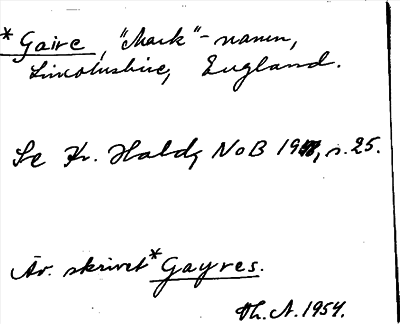 *Gaire, "Mark"-namn,
Lincolnshire, England.
Se Kr. Hald, NoB 19, s. 25.
Äv. skrivet *Gayres.
Th. A. 1954.